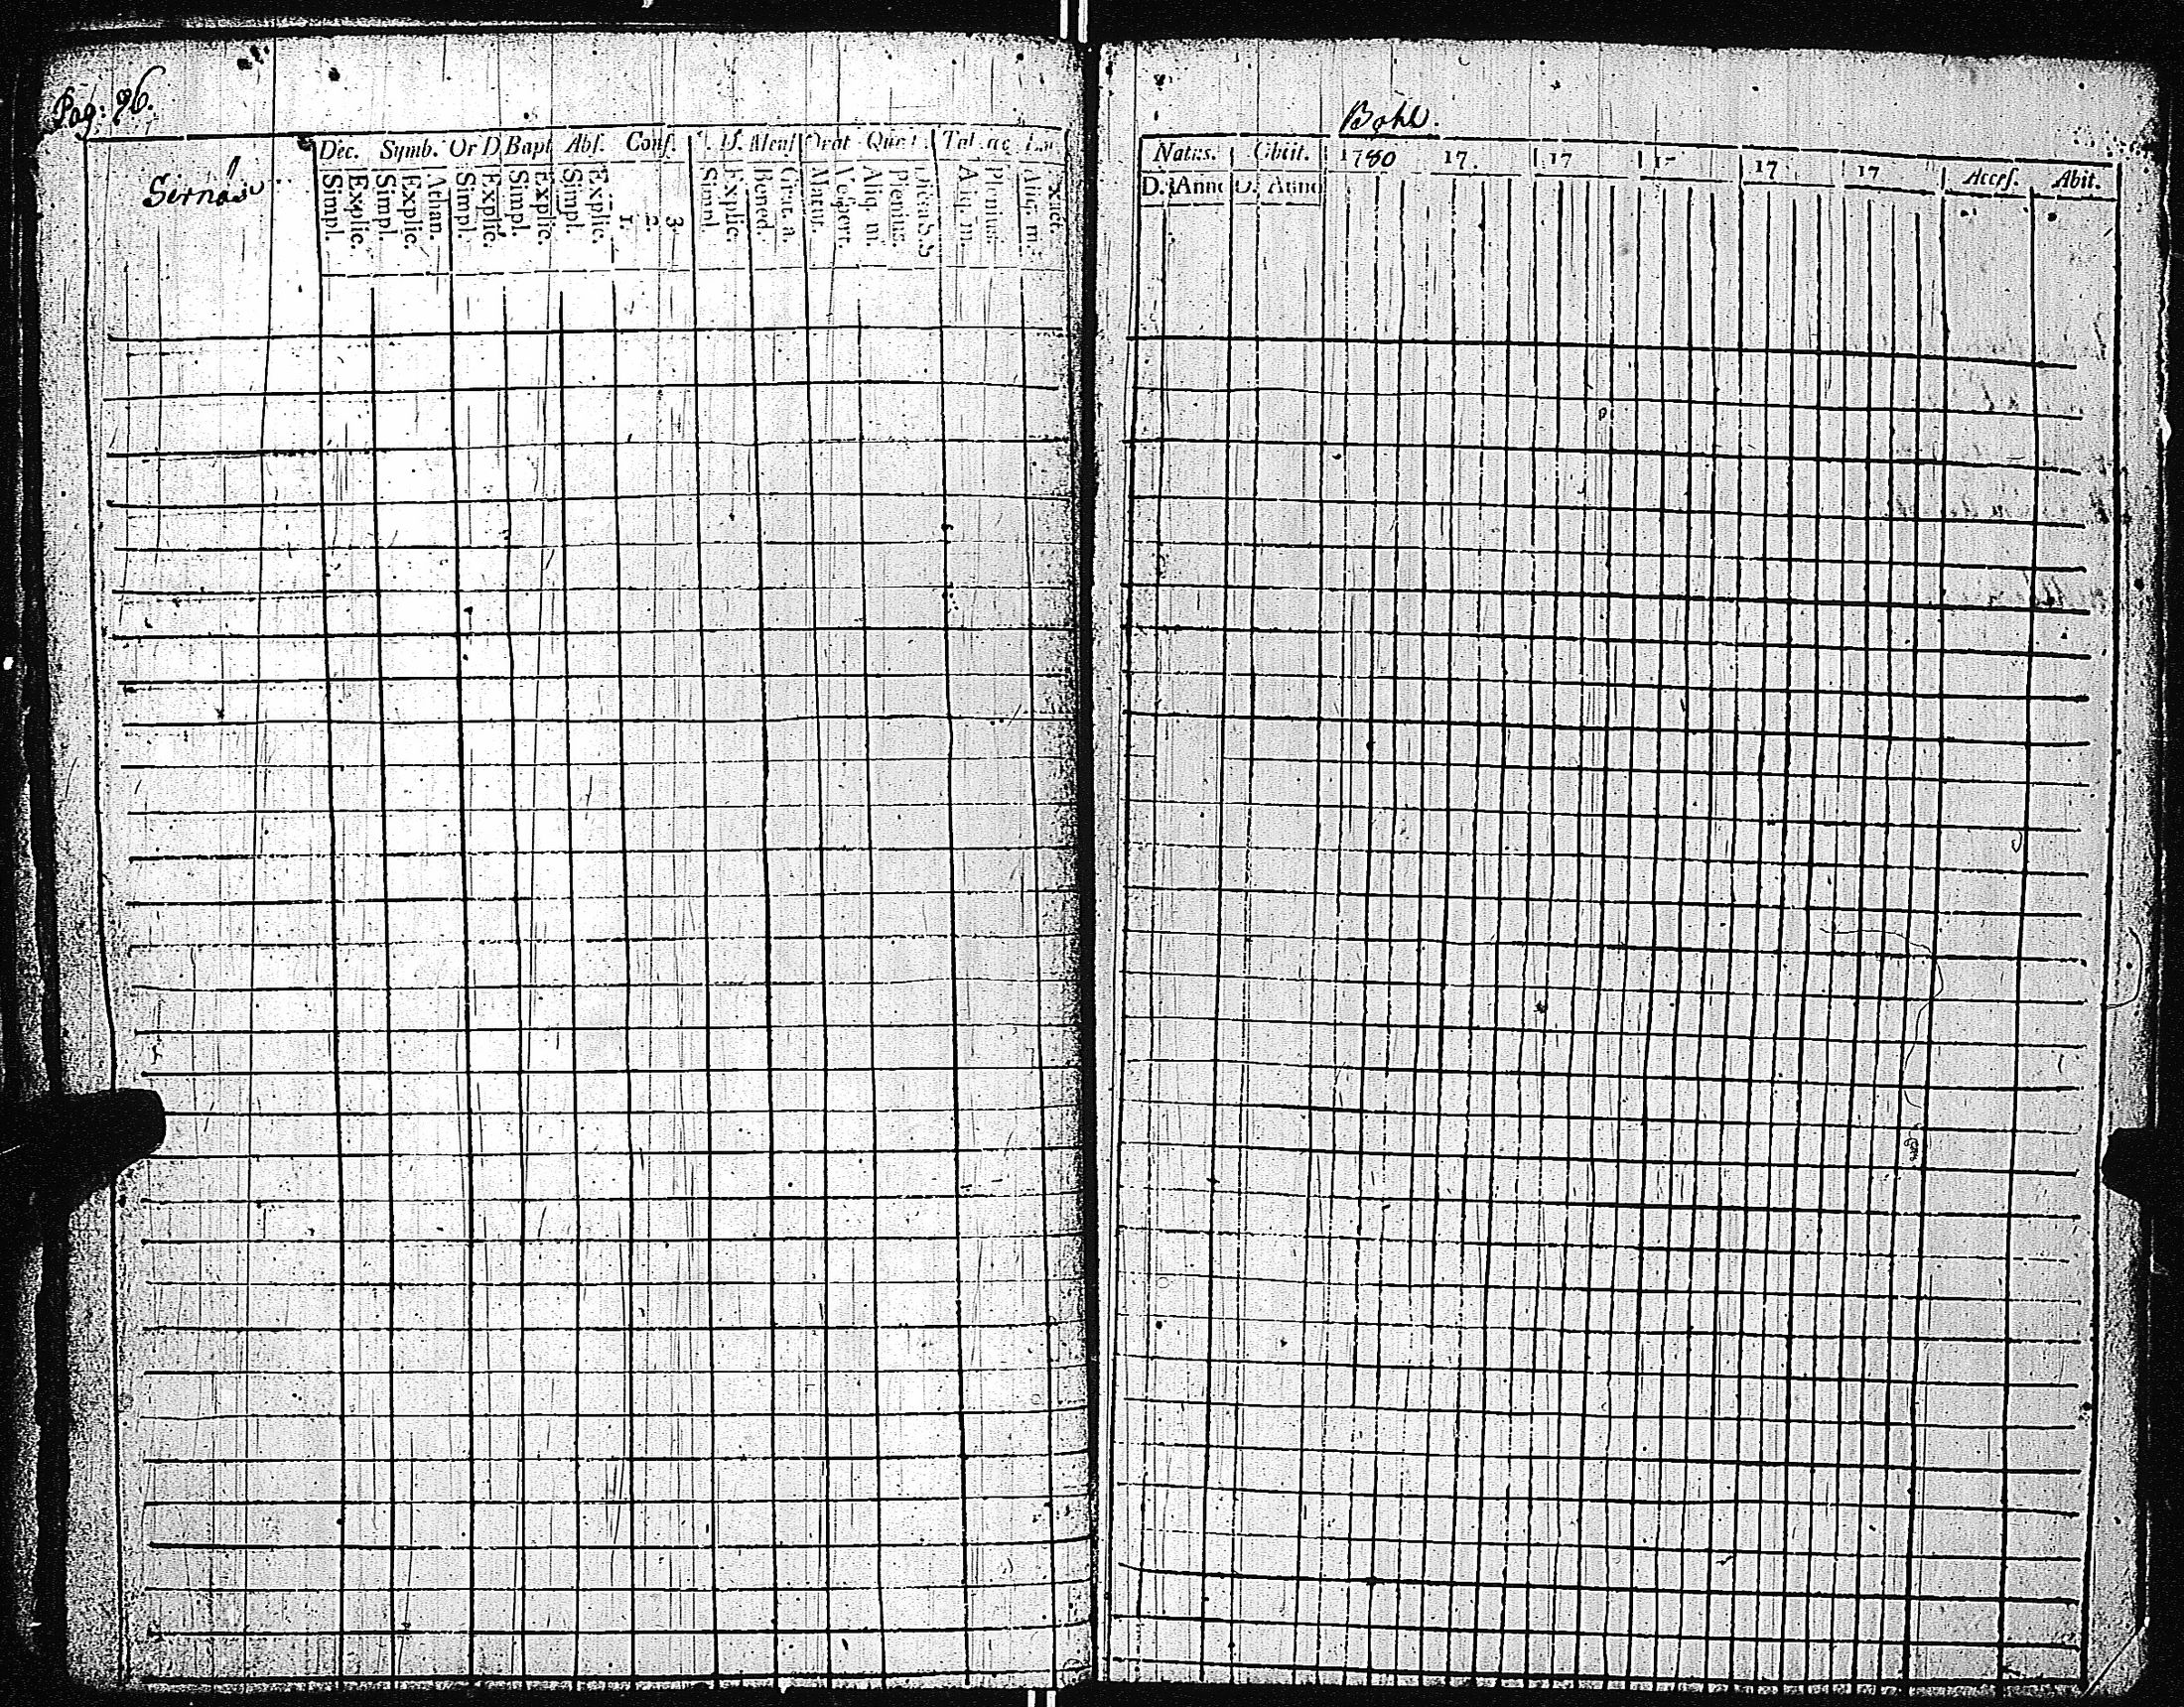 Pag: 96.
Sirnäs
Dec. Symb. Or D Bapt Abs. Conf.
Simpl. Explic. Simpl. Explic. Athan. Simpl. Explic. Simpl. Explic. Simpl. Explic. 1. 2. 3. Simpl. Explic. Bened. Grat. a. Matut. Vespert. Aliq. m. Plenius. Dicta S.S Aliq. m. Plenius. Aliq. m.
Bohl.
Natus. Obiit. 1780 17. 17 17 17 17 Access. Abit.
D. Anno D. Anno